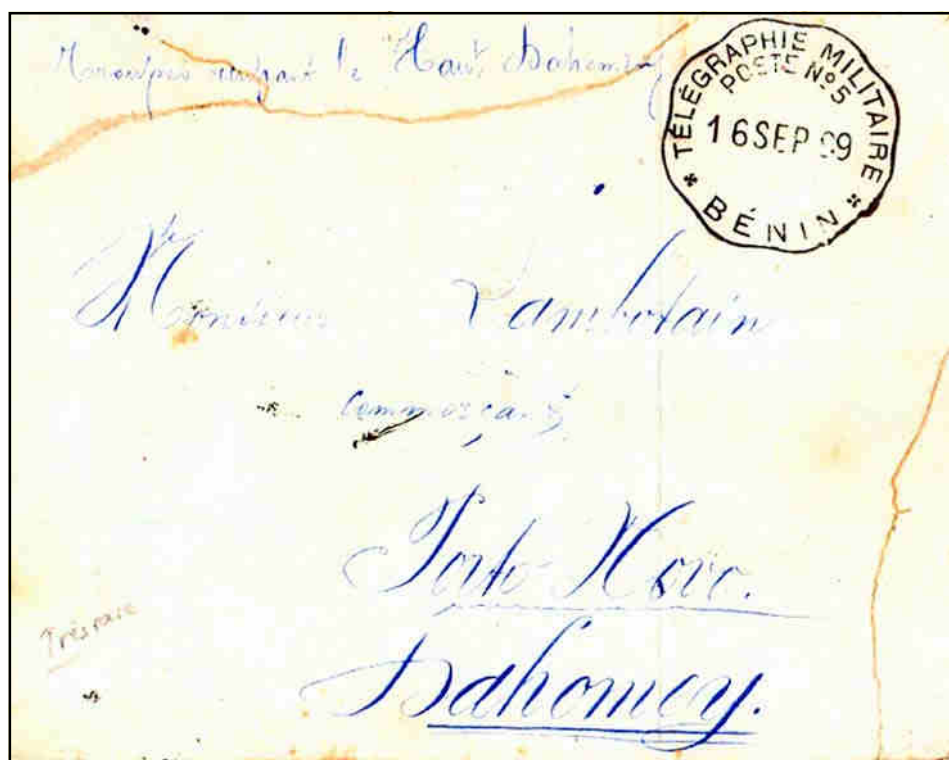 occupant le Haut Dahomey
TÉLÉGRAPHIE MILITAIRE
POSTE Nº5
16 SEP 99
* BÉNIN *
Monsieur Lambotain
Commerçant
Porto Novo.
Dahomey.
Très rare